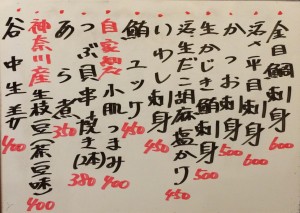 金目鯛刺身 600
活〆平目刺身 600
かつお刺身 500
生かじき鮪刺身 500
活生だこ胡麻塩かけ 450
いわし刺身 450
鮪ユッケ 450
自家製 小肌つまみ 400
つぶ貝串焼き(2本) 380
あら煮 350
神奈川産生枝豆(茶豆味) 400
谷中生姜 400